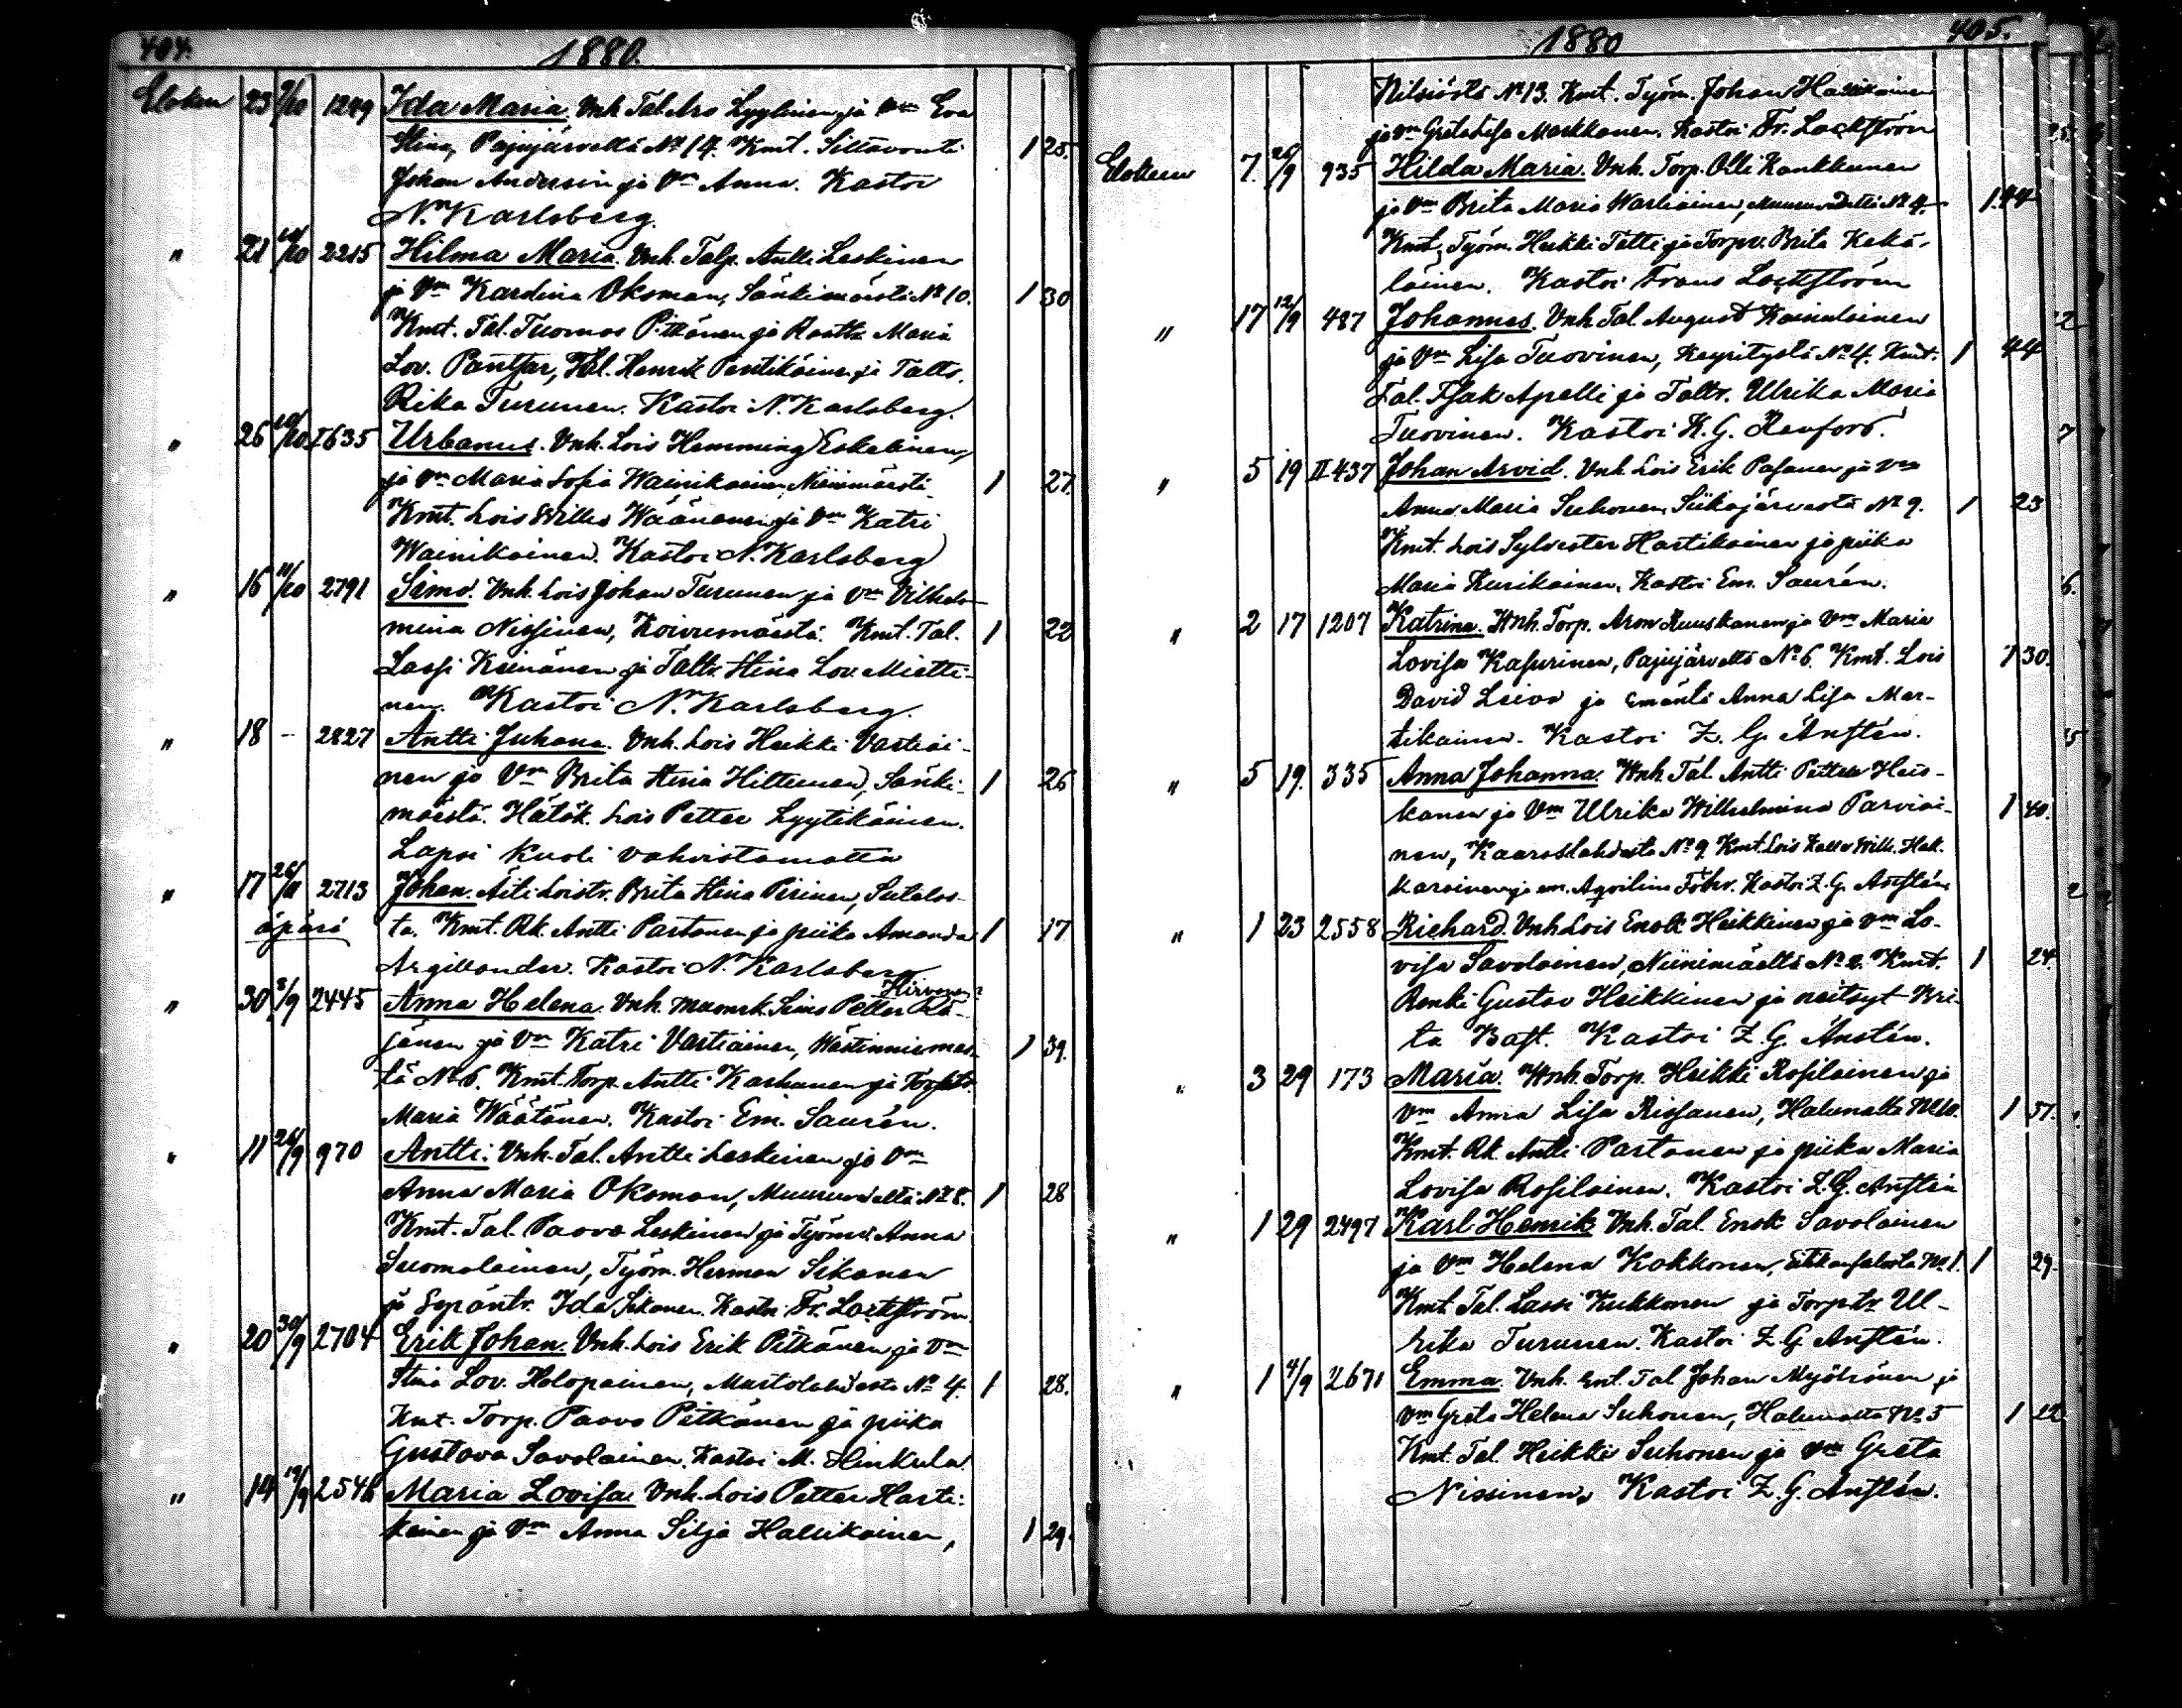 404.
1880.
Elokuu 23 9/10 1249 Ida Maria. Vnh. Tal. Aro Lyytinen ja Vm Eva
Stina, Pajujärveltä No 14. Kmt. Siltavouti 1 25.
Johan Andersin ja Vm Anna. Kastoi
N. Karlsberg.
" 21 10/10 2215 Hilma Maria. Vnh. Talp. Antti Leskinen
ja Vm Karolina Oksman, Sänkimäestä No 10. 1 30
Kmt. Tal. Tuomas Pitkänen ja Maria
Lov. Pantsar, Tal. Henrik Pentikäinen ja Talts.
Rika Turunen. Kastoi N. Karlsberg.
" 26 10/10 I635 Urbanus. Vnh. Lois Hemming Eskelinen,
ja Vm Maria Sofia Wainikainen, Niinimäestä 1 27.
Kmt. Lois Wille Wäänänen ja Vm Katri
Wainikainen. Kastoi N. Karlsberg
" 16 11/10 2791 Simo. Vnh. Lois Johan Turunen ja Vm Vilhel-
mina Nissinen, Koivumäestä. Kmt. Tal. 1 22
Lassi Keinänen ja Taltr. Stina Lov. Mietti-
nen. Kastoi N. Karlsberg.
" 18 - 2827 Antti Juhana. Vnh. Lois Heikki Vartiai-
nen ja Vm Brita Stina Hiltunen, Sänki- 1 26
mäestä. Hätäk. Lois Petter Lyytikäinen.
Lapsi kuoli vahvistamatta
" 17 26/11 2713 Johan. Äiti Loistr. Brita Stina Piirinen, Sutelas-
äpärä ta. Kmt. Rk. Antti Partanen ja piika Amanda 1 17
Argillander. Kastoi N. Karlsberg
Hirvonen?
" 30 8/9 2445 Anna Helena. Vnh. Simo Petter Rä-
sänen ja Vm Katri Vartiainen, Wästinniemes- 1 39.
tä No 6. Kmt. Torp. Antti Karhunen ja Torptr.
Maria Wäätänen. Kastoi Em. Saurén.
" 11 26/9 970 Antti. Vnh. Tal. Antti Leskinen ja Vm
Anna Maria Oksman, Muuruvedeltä No 8. 1 28
Kmt. Tal. Paavo Leskinen ja Työmv. Anna
Suomalainen, Työm. Herman Sikanen
ja Ida Sikanen. Kastoi Fr. Lackström
" 20 30/9 2704 Erik Johan. Vnh. Lois Erik Pitkänen ja Vm
Stina Lov. Holopainen, Mustolahdesta No 4. 1 28.
Kmt. Torp. Paavo Pitkänen ja piika
Gustava Savolainen. Kastoi M. Hinkula
" 14 19/9 2548 Maria Lovisa. Vnh. Lois Petter Harti-
kainen ja Vm Anna Silja Hallikainen, 1 29.
1880
405.
Nilsiästä No 13. Kmt. Työm. Johan Hallikainen
ja Vm Greta Lisa Markkanen. Kastoi Fr. Lackström
Elokuu 7. 26/9 935 Hilda Maria. Vnh. Torp. Olli Kankkunen
ja Vm Brita Maria Wartiainen, Muuruvedeltä No 4. 1.44
Kmt. Työm. Heikki Tatti ja Torpv. Brita Kekä-
läinen. Kastoi Frans Lackström
" 17 12/9 487 Johannes. Vnh. Tal. August Kainulainen
ja Vm Lisa Tuovinen, Keyritystä No 4. Kmt. 1 44
Tal. Isak Apelli ja Taltr. Ulrika Maria
Tuovinen. Kastoi K. G. Renfors.
" 5 19 II 437 Johan Arvid. Vnh. Lois Erik Pasanen ja Vm
Anna Maria Suhonen, Siikajärvestä No 9. 1 23
Kmt. Lois Sylvester Hartikainen ja piika
Maria Kurikainen. Kastoi Em. Saurén.
" 2 17 1207 Katrina. Vnh. Torp. Aron Ruuskanen ja Vm Maria
Lovisa Kasurinen, Pajujärveltä No 6. Kmt. Lois 1 30.
David Leivo ja emäntä Anna Lisa Mar-
tikainen. Kastoi Z. G. Ansten.
" 5 19. 335 Anna Johanna. Vnh. Tal. Antti Petter Heis-
kanen ja Vm Ulrika Wilhelmina Parviai- 1 40.
nen, Kaaraslahdesta No 9. Kmt. Lois Kalle Wilh. Hak-
karainen ja em. Aqvilina Kastoi Z. G. Ansten
" 1 23 2558 Richard. Vnh. Lois Enok Heikkinen ja Vm Lo-
visa Savolainen, Niinimäeltä No 2. Kmt. 1 24.
Renki Gustav Heikkinen ja neitsyt Bri-
ta Bast. Kastoi Z. G. Ansten.
" 3 29 173 Maria. Vnh. Torp. Heikki Rosilainen ja
Vm Anna Lisa Rissanen, Halunalta No 10. 1 37.
Kmt. Rk. Antti Partanen ja piika Maria
Lovisa Rosilainen. Kastoi Z. G. Ansten
" 1 29 2497 Karl Henrik. Vnh. Tal. Enok Savolainen
ja Vm Helena Kokkonen, No 1. 1 29.
Kmt. Tal. Lassi Kukkonen ja Torptr. Ul-
rika Turunen. Kastoi Z. G. Ansten.
" 1 4/9 2671 Emma. Vnh. ent. Tal. Johan Myöhänen ja
Vm Greta Helena Suhonen, Halunalta No 5 1 22
Kmt. Tal. Heikki Suhonen ja Vm Greta
Nissinen. Kastoi Z. G. Ansten.